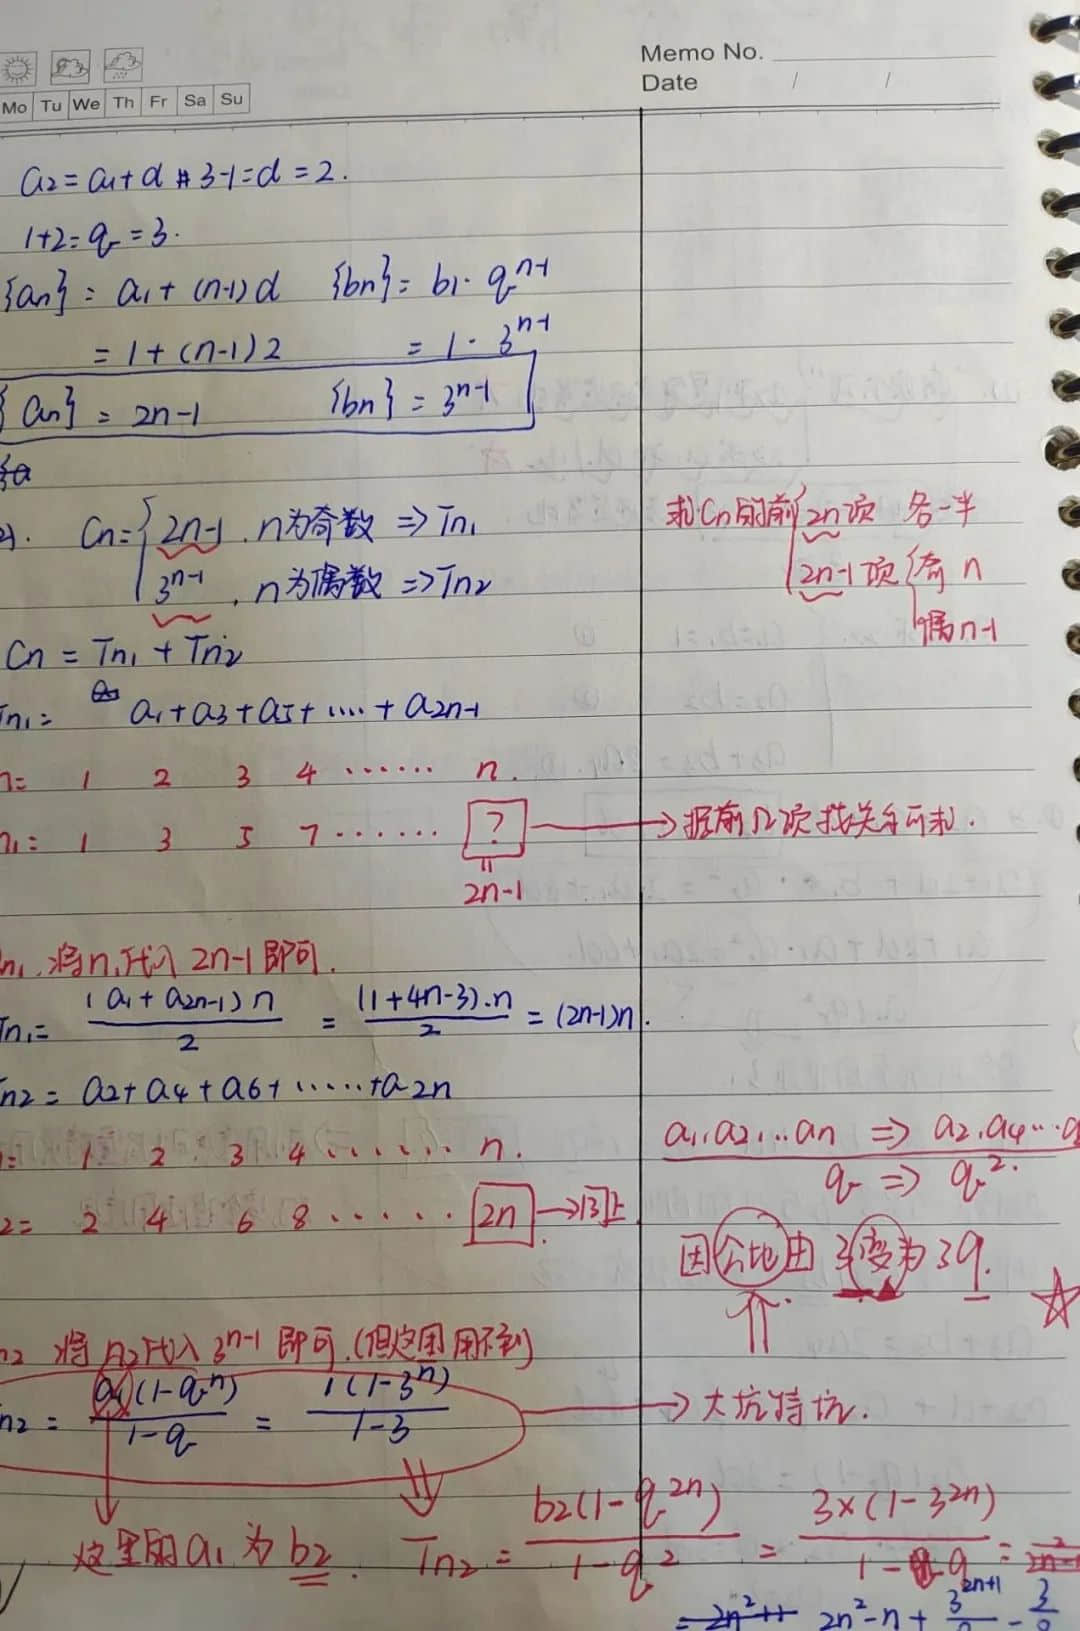 Memo No.
Date / /
Mo Tu We Th Fr Sa Su
a₂=a₁+d 3-1=d=2.
1+2=q=3.
{an} = a₁+(n-1)d {bn}= b₁·qⁿ⁻¹
= 1+(n-1)2 = 1·3ⁿ⁻¹
{an} = 2n-1 {bn} = 3ⁿ⁻¹
Cn={2n-1, n为奇数 ⇒Tn₁
3ⁿ⁻¹, n为偶数 ⇒Tn₂
求Cn的前{2n项 各一半
2n-1项{奇 n
偶n-1
Cn = Tn₁ + Tn₂
Tn₁= a₁+a₃+a₅+····+a2n-1
n= 1 2 3 4 ······ n.
n₁= 1 3 5 7 ······ ? → 据前几项找关系可求.
=
2n-1
n₁,将n₁代入2n-1即可.
Tn₁= (a₁+a2n-1)n/2 = (1+4n-3)·n/2 = (2n-1)n.
Tn₂= a₂+a₄+a₆+·····+a2n
= 1 2 3 4 ······ n.
a₁,a₂,...an ⇒ a₂,a₄...
q ⇒ q².
2= 2 4 6 8 ····· 2n →同上
因公比由3变为9.
n₂ 将n₂代入3ⁿ⁻¹即可.(但这里用不到)
n₂= a₁(1-qⁿ)/1-q = 1(1-3ⁿ)/1-3 → 大坑特坑.
这里的a₁为b₂. Tn₂ = b₂(1-q²ⁿ)/1-q² = 3×(1-3²ⁿ)/1-9 =
2n²-n+